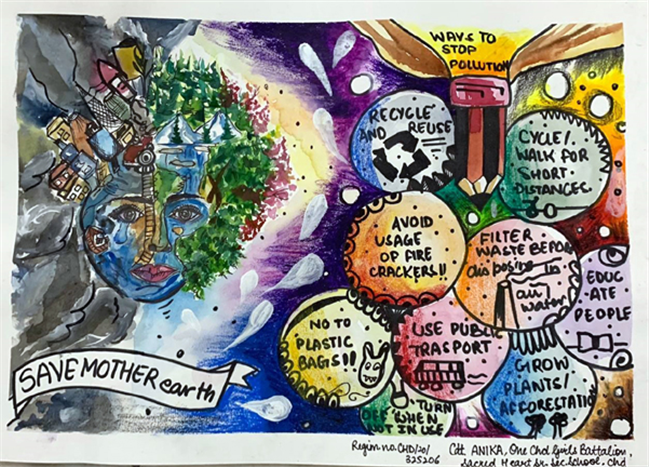 WAYS TO
STOP
POLLUTION
RECYCLE
AND REUSE
CYCLE/
WALK FOR
SHORT
DISTANCES
AVOID
USAGE
OF FIRE
CRACKERS!!
FILTER
WASTE BEFORE
disposing in
air/
water
EDUC
ATE
PEOPLE
NO TO
PLASTIC
BAGS!!
USE PUBLIC
TRASPORT
GROW
PLANTS/
AFFORESTATIO
TURN
OFF WHEN
NOT IN USE
SAVE MOTHER earth
Regim no. CHD/20/
325206
Cdt ANIKA, One Chd Girls Battalion,
Sacred Heart Sr. Sec School, Chd